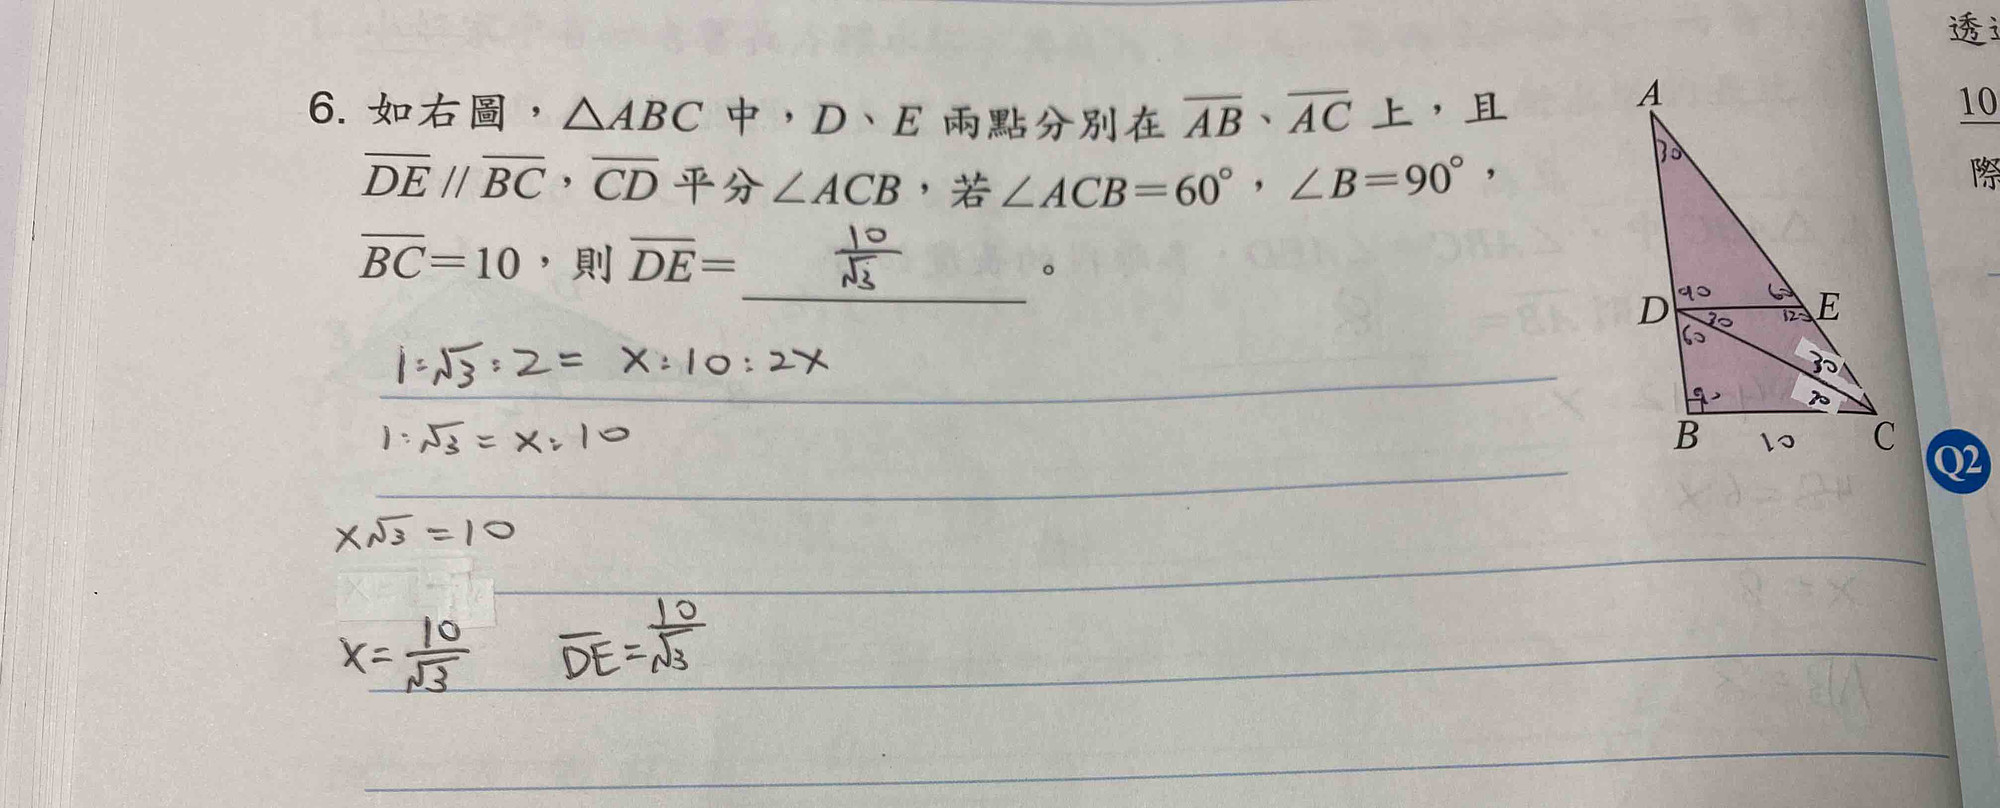 透
10
際
6. 如右圖，△ABC 中，D、E 兩點分別在 AB、AC 上，且
DE // BC，CD 平分∠ACB，若∠ACB=60°，∠B=90°，
BC=10，則 DE= 10/√3 。
1:√3:2= x:10:2x
1:√3=x:10
x√3=10
x=10/√3 DE=10/√3
A
30
D 90 60 E
30 120
60
30
30
B 10 C
Q2